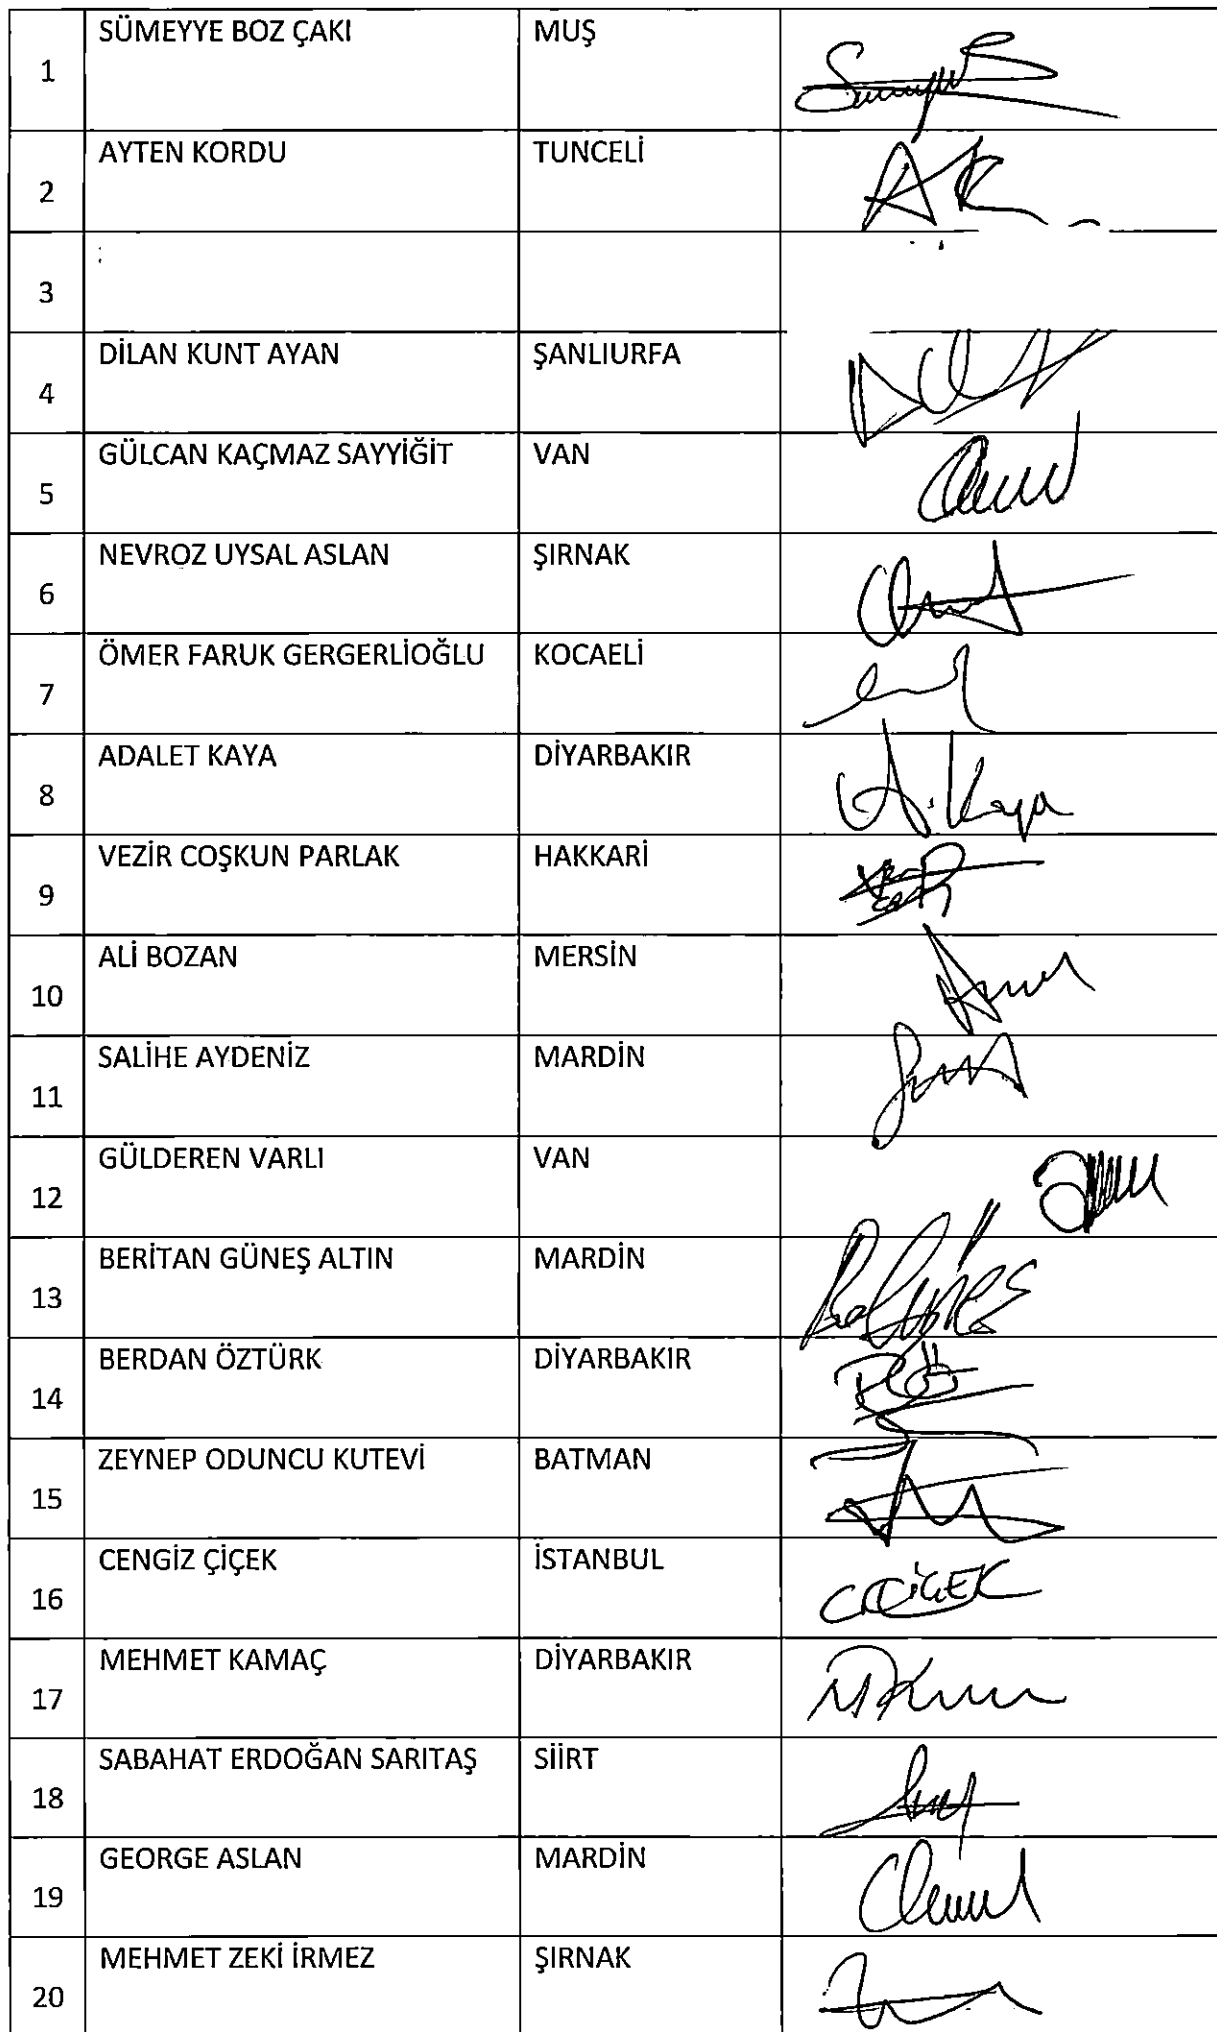 1 SÜMEYYE BOZ ÇAKI MUŞ
2 AYTEN KORDU TUNCELİ AK
3
4 DİLAN KUNT AYAN ŞANLIURFA
5 GÜLCAN KAÇMAZ SAYYİĞİT VAN
6 NEVROZ UYSAL ASLAN ŞIRNAK
7 ÖMER FARUK GERGERLİOĞLU KOCAELİ
8 ADALET KAYA DİYARBAKIR A. Kaya
9 VEZİR COŞKUN PARLAK HAKKARİ
10 ALİ BOZAN MERSİN
11 SALİHE AYDENİZ MARDİN
12 GÜLDEREN VARLI VAN
13 BERİTAN GÜNEŞ ALTIN MARDİN
14 BERDAN ÖZTÜRK DİYARBAKIR
15 ZEYNEP ODUNCU KUTEVİ BATMAN
16 CENGİZ ÇİÇEK İSTANBUL
17 MEHMET KAMAÇ DİYARBAKIR
18 SABAHAT ERDOĞAN SARITAŞ SİİRT
19 GEORGE ASLAN MARDİN
20 MEHMET ZEKİ İRMEZ ŞIRNAK